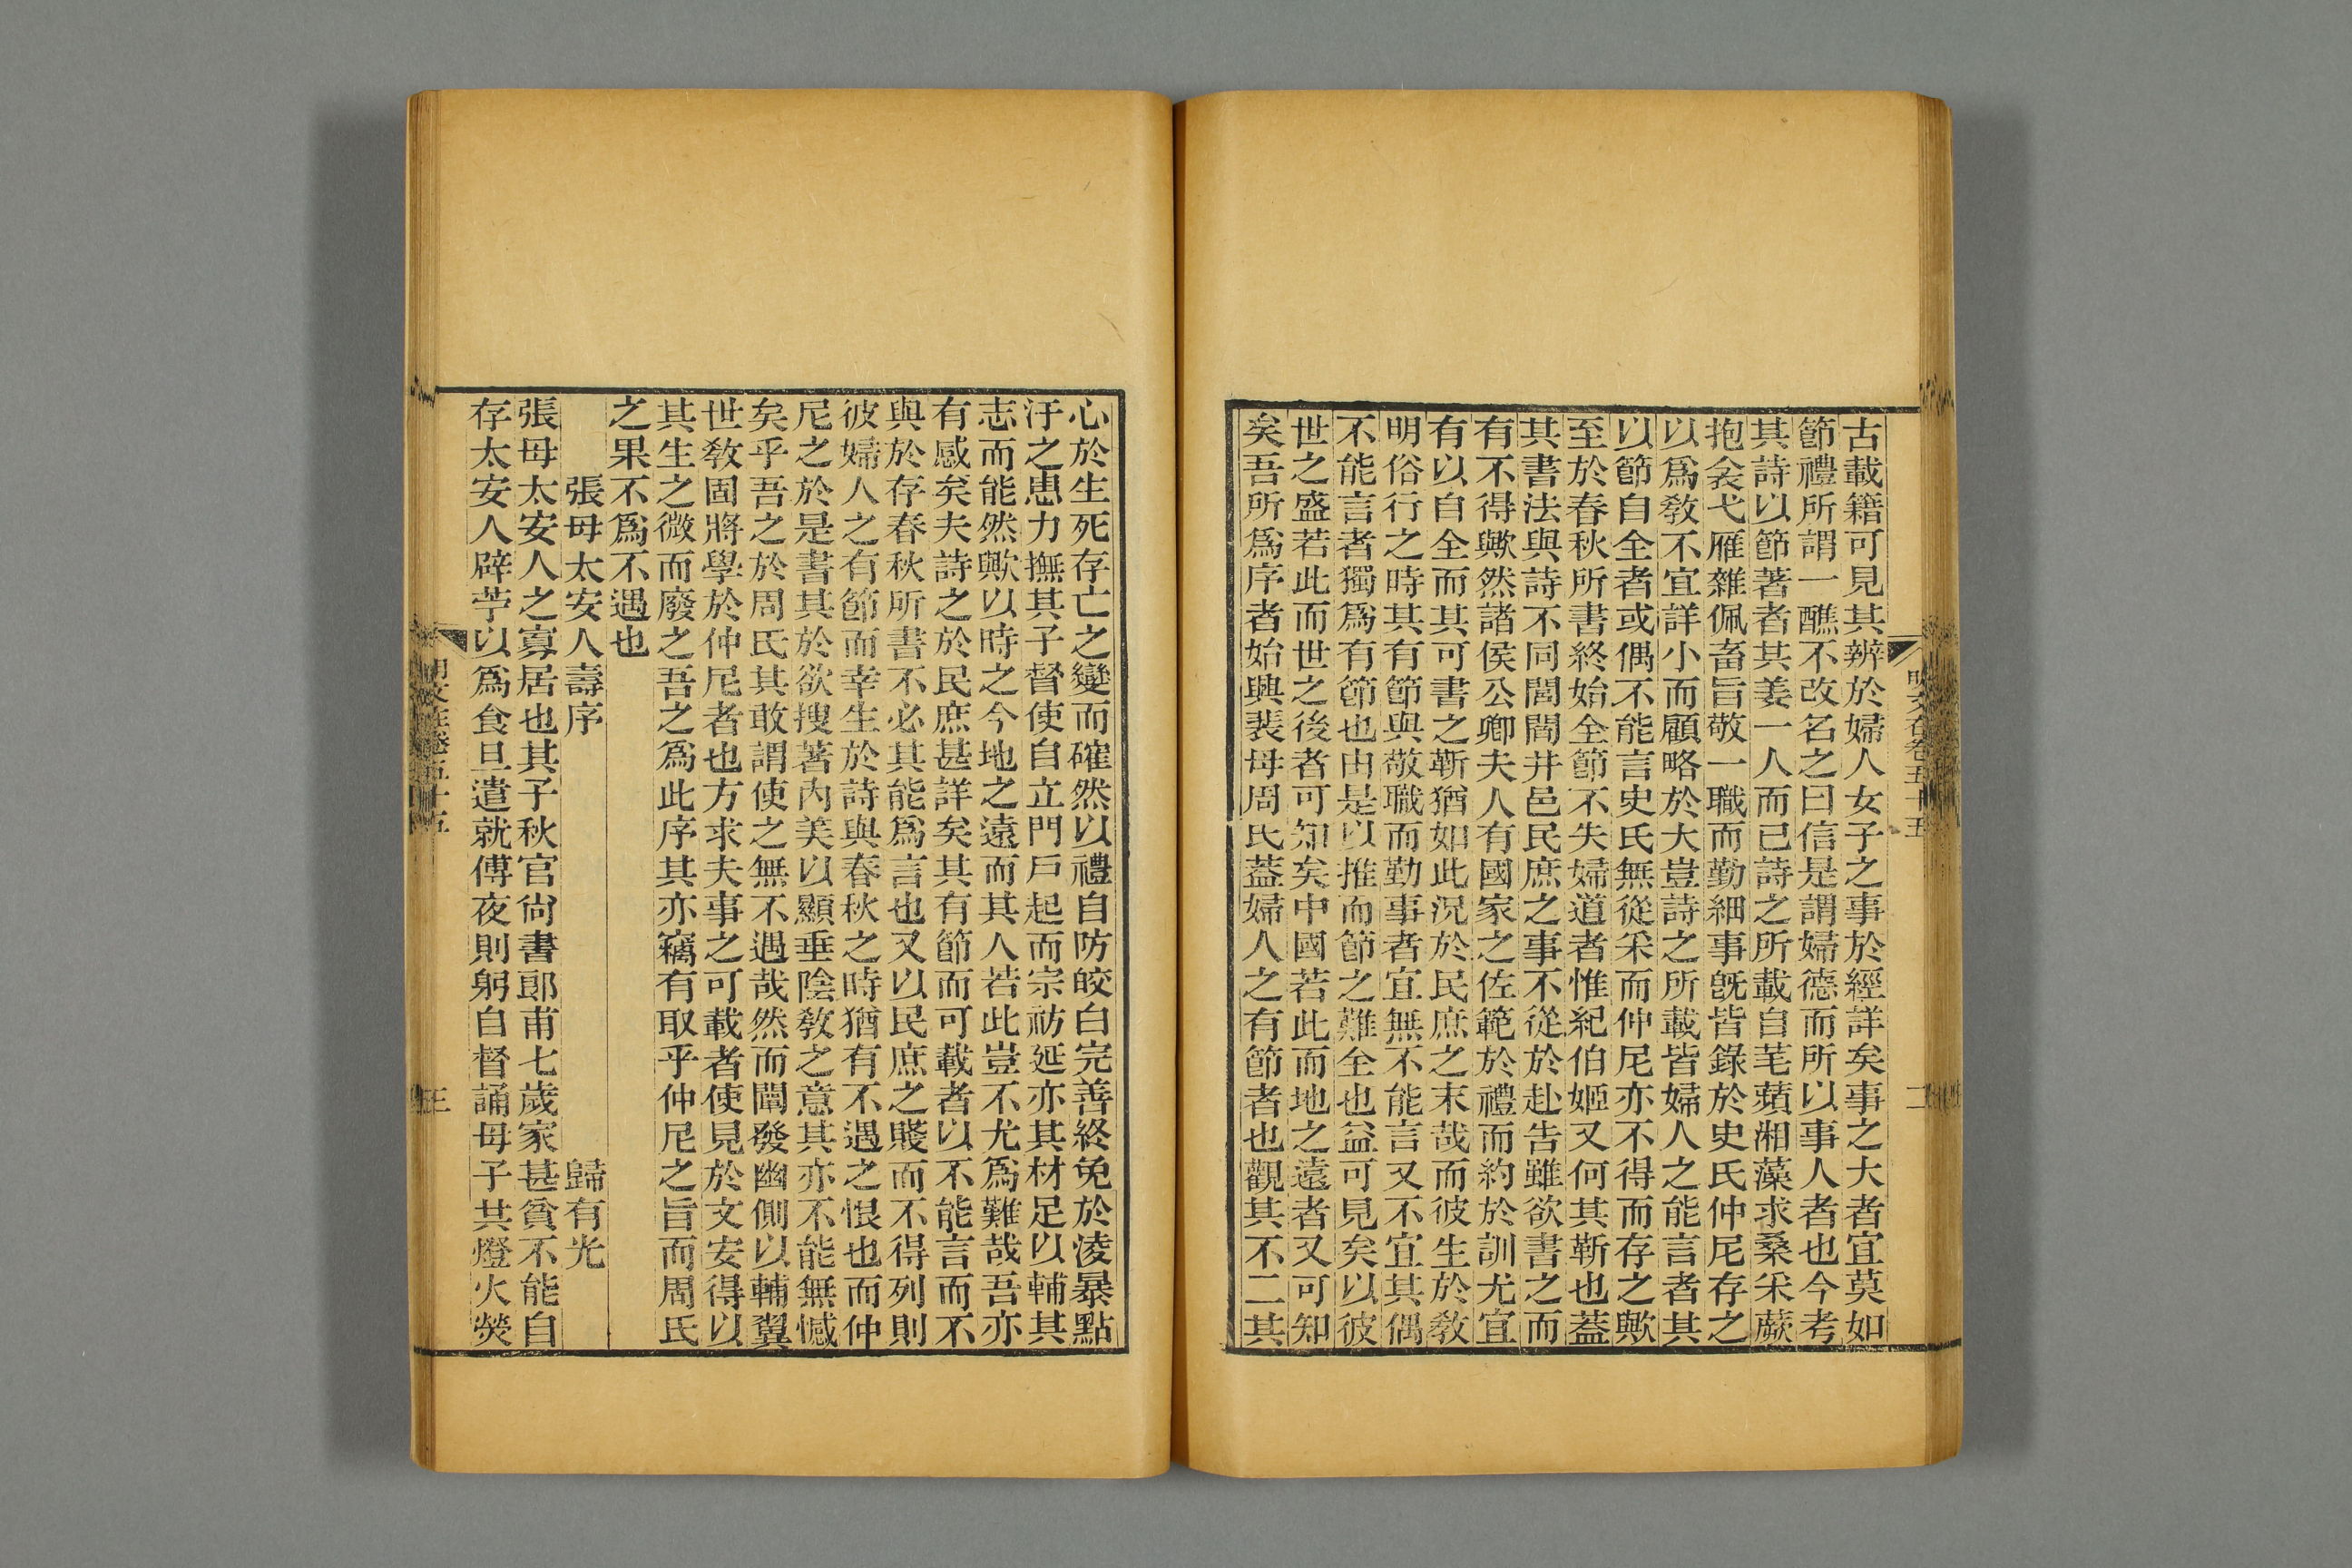 古載籍可見其辨於婦人女子之事於經詳矣事之大者宜莫如
節禮所謂一醮不改名之曰信是謂婦德而所以事人者也今考
其詩以節著者其姜一人而已詩之所載自芼蘋湘藻求桑采蕨
抱衾弋雁雜佩畜旨敬一職而勤細事旣皆錄於史氏仲尼存之
以爲敎不宜詳小而顧略於大豈詩之所載皆婦人之能言者其
以節自全者或偶不能言史氏無從采而仲尼亦不得而存之歟
至於春秋所書終始全節不失婦道者惟紀伯姬又何其靳也蓋
其書法與詩不同閭閻井邑民庶之事不從於赴告雖欲書之而
有不得歟然諸侯公卿夫人有國家之佐範於禮而約於訓尤宜
有以自全而其可書之靳猶如此況於民庶之末哉而彼生於敎
明俗行之時其有節與敬職而勤事者宜無不能言又不宜其偶
不能言者獨爲有節也由是以推而節之難全也益可見矣以彼
世之盛若此而世之後者可知矣中國若此而地之遠者又可知
矣吾所爲序者始興裴母周氏蓋婦人之有節者也觀其不二其
明文在卷五十五
二
心於生死存亡之變而確然以禮自防皎白完善終免於淩暴點
汙之患力撫其子督使自立門戶起而宗祊延亦其材足以輔其
志而能然歟以時之今地之遠而其人若此豈不尤爲難哉吾亦
有感矣夫詩之於民庶甚詳矣其有節而可載者以不能言而不
與於存春秋所書不必其能爲言也又以民庶之賤而不得列則
彼婦人之有節而幸生於詩與春秋之時猶有不遇之恨也而仲
尼之於是書其於欲搜著內美以顯垂陰敎之意其亦不能無憾
矣乎吾之於周氏其敢謂使之無不遇哉然而闡發幽側以輔翼
世敎固將學於仲尼者也方求夫事之可載者使見於文安得以
其生之微而廢之吾之爲此序其亦竊有取乎仲尼之旨而周氏
之果不爲不遇也
張母太安人壽序
歸有光
張母太安人之寡居也其子秋官尙書郞甫七歲家甚貧不能自
存太安人辟苧以爲食旦遣就傅夜則躬自督誦母子共燈火熒
明文在卷五十五
三